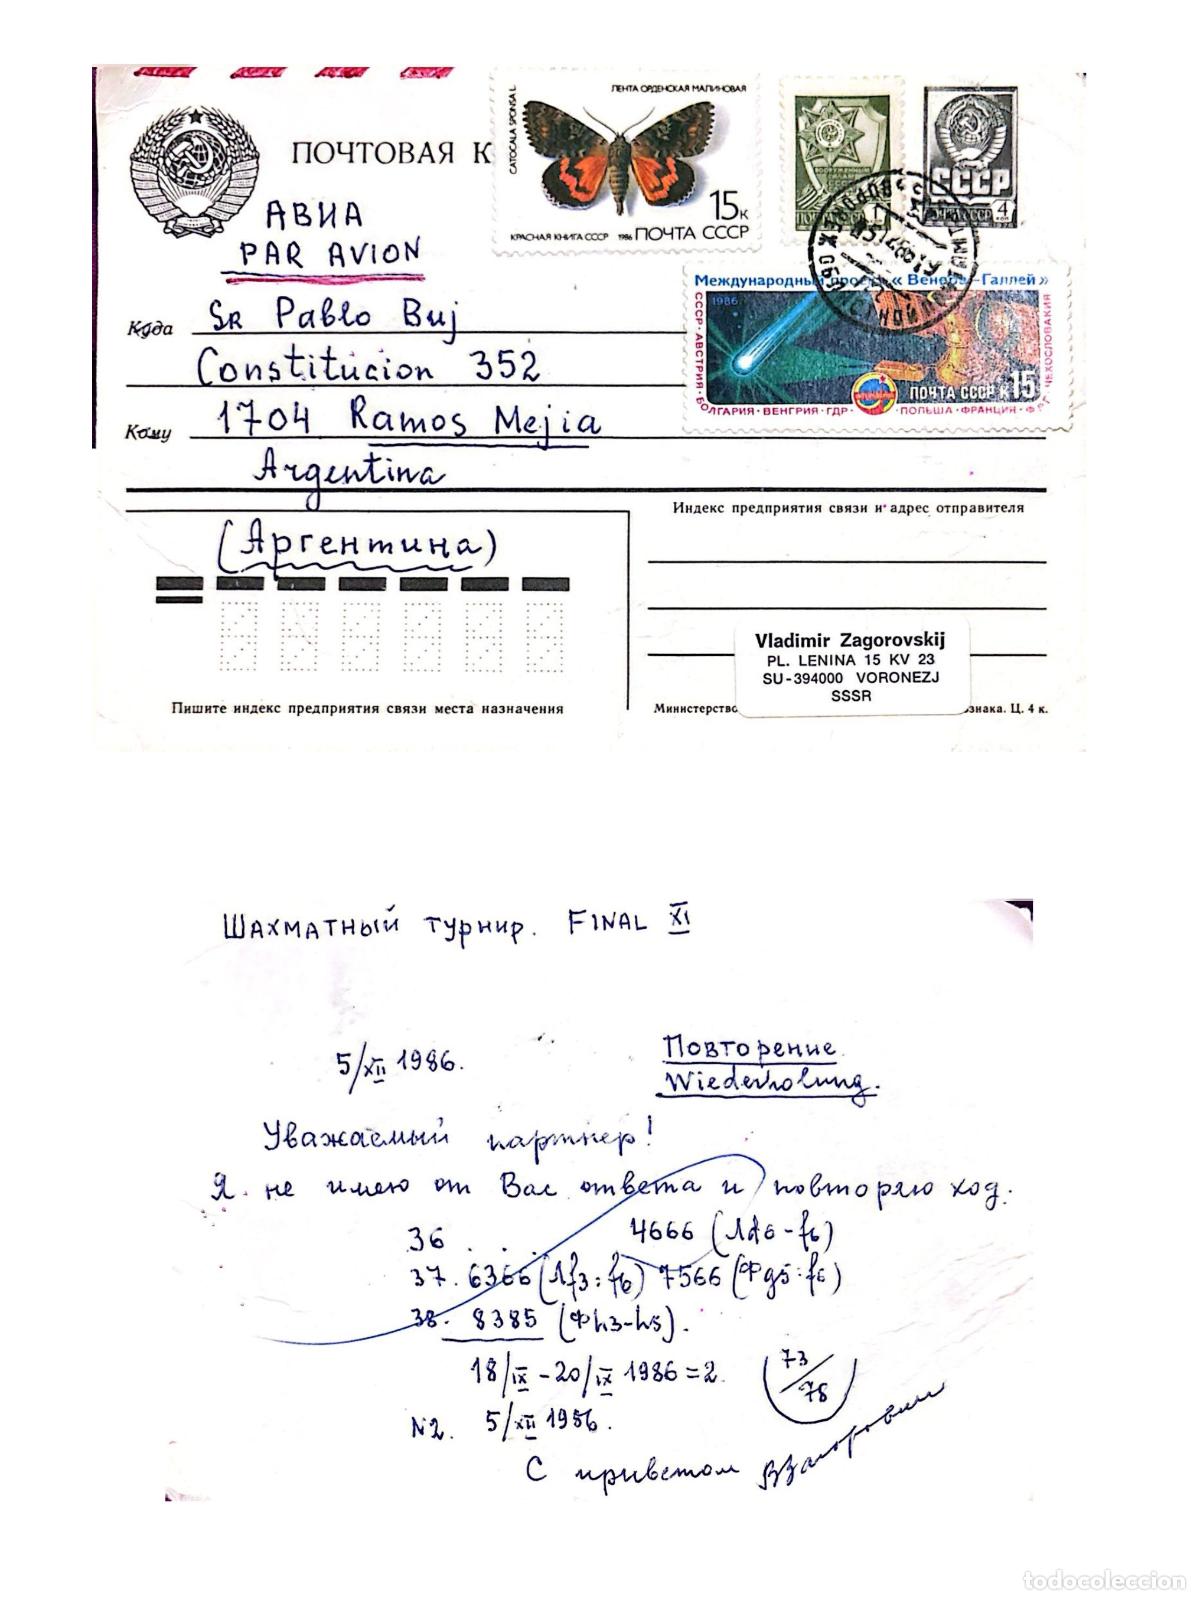 ПОЧТОВАЯ К
CATOCALA SPONSA L.
ЛЕНТА ОРДЕНСКАЯ МАЛИНОВАЯ
15к
КРАСНАЯ КНИГА СССР 1986 ПОЧТА СССР
ПОЧТА СССР
СССР
4
Международный « Венера-Галлей »
1986
СССР · АВСТРИЯ · БОЛГАРИЯ · ВЕНГРИЯ · ГДР · ПОЛЬША · ФРАНЦИЯ · ЧЕХОСЛОВАКИЯ
ПОЧТА СССР к 15
АВИА
PAR AVION
Куда Sr Pablo Buj
Constitucion 352
Кому 1704 Ramos Mejia
Argentina
(Аргентина)
Индекс предприятия связи и адрес отправителя
Vladimir Zagorovskij
PL. LENINA 15 KV 23
SU-394000 VORONEZJ
SSSR
Пишите индекс предприятия связи места назначения
Министерство знака. Ц. 4 к.
Шахматный турнир. FINAL XI
5/XII 1986.
Повторение
Wiederholung.
Уважаемый партнер!
Я не имею от Вас ответа и повторяю ход.
36 . . . 4666 (Лd6-f6)
37. 6366 (Лf3:f6) 7566 (Фg5:f6)
38. 8385 (Фh3-h5).
18/IX - 20/IX 1986 = 2.
73/78
N2. 5/XII 1986.
С приветом ВЗагоровский
todocoleccion